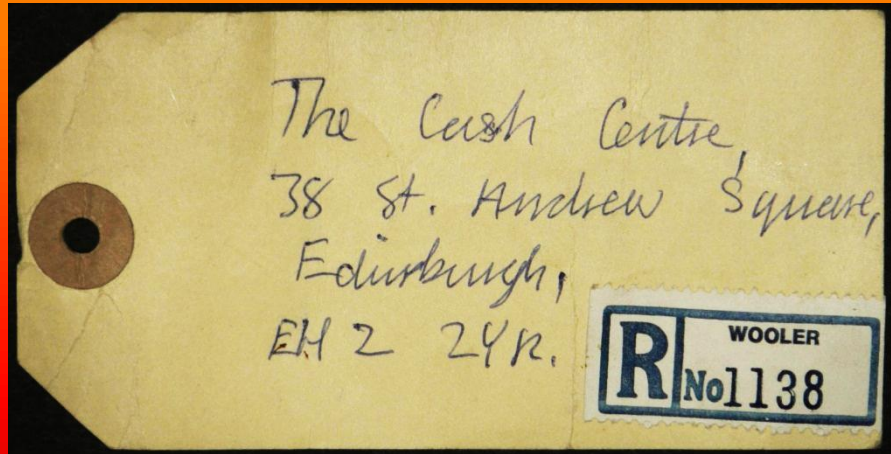 The Cash Centre,
38 St. Andrew Square,
Edinburgh,
EH 2 2YR.
R
WOOLER
No1138